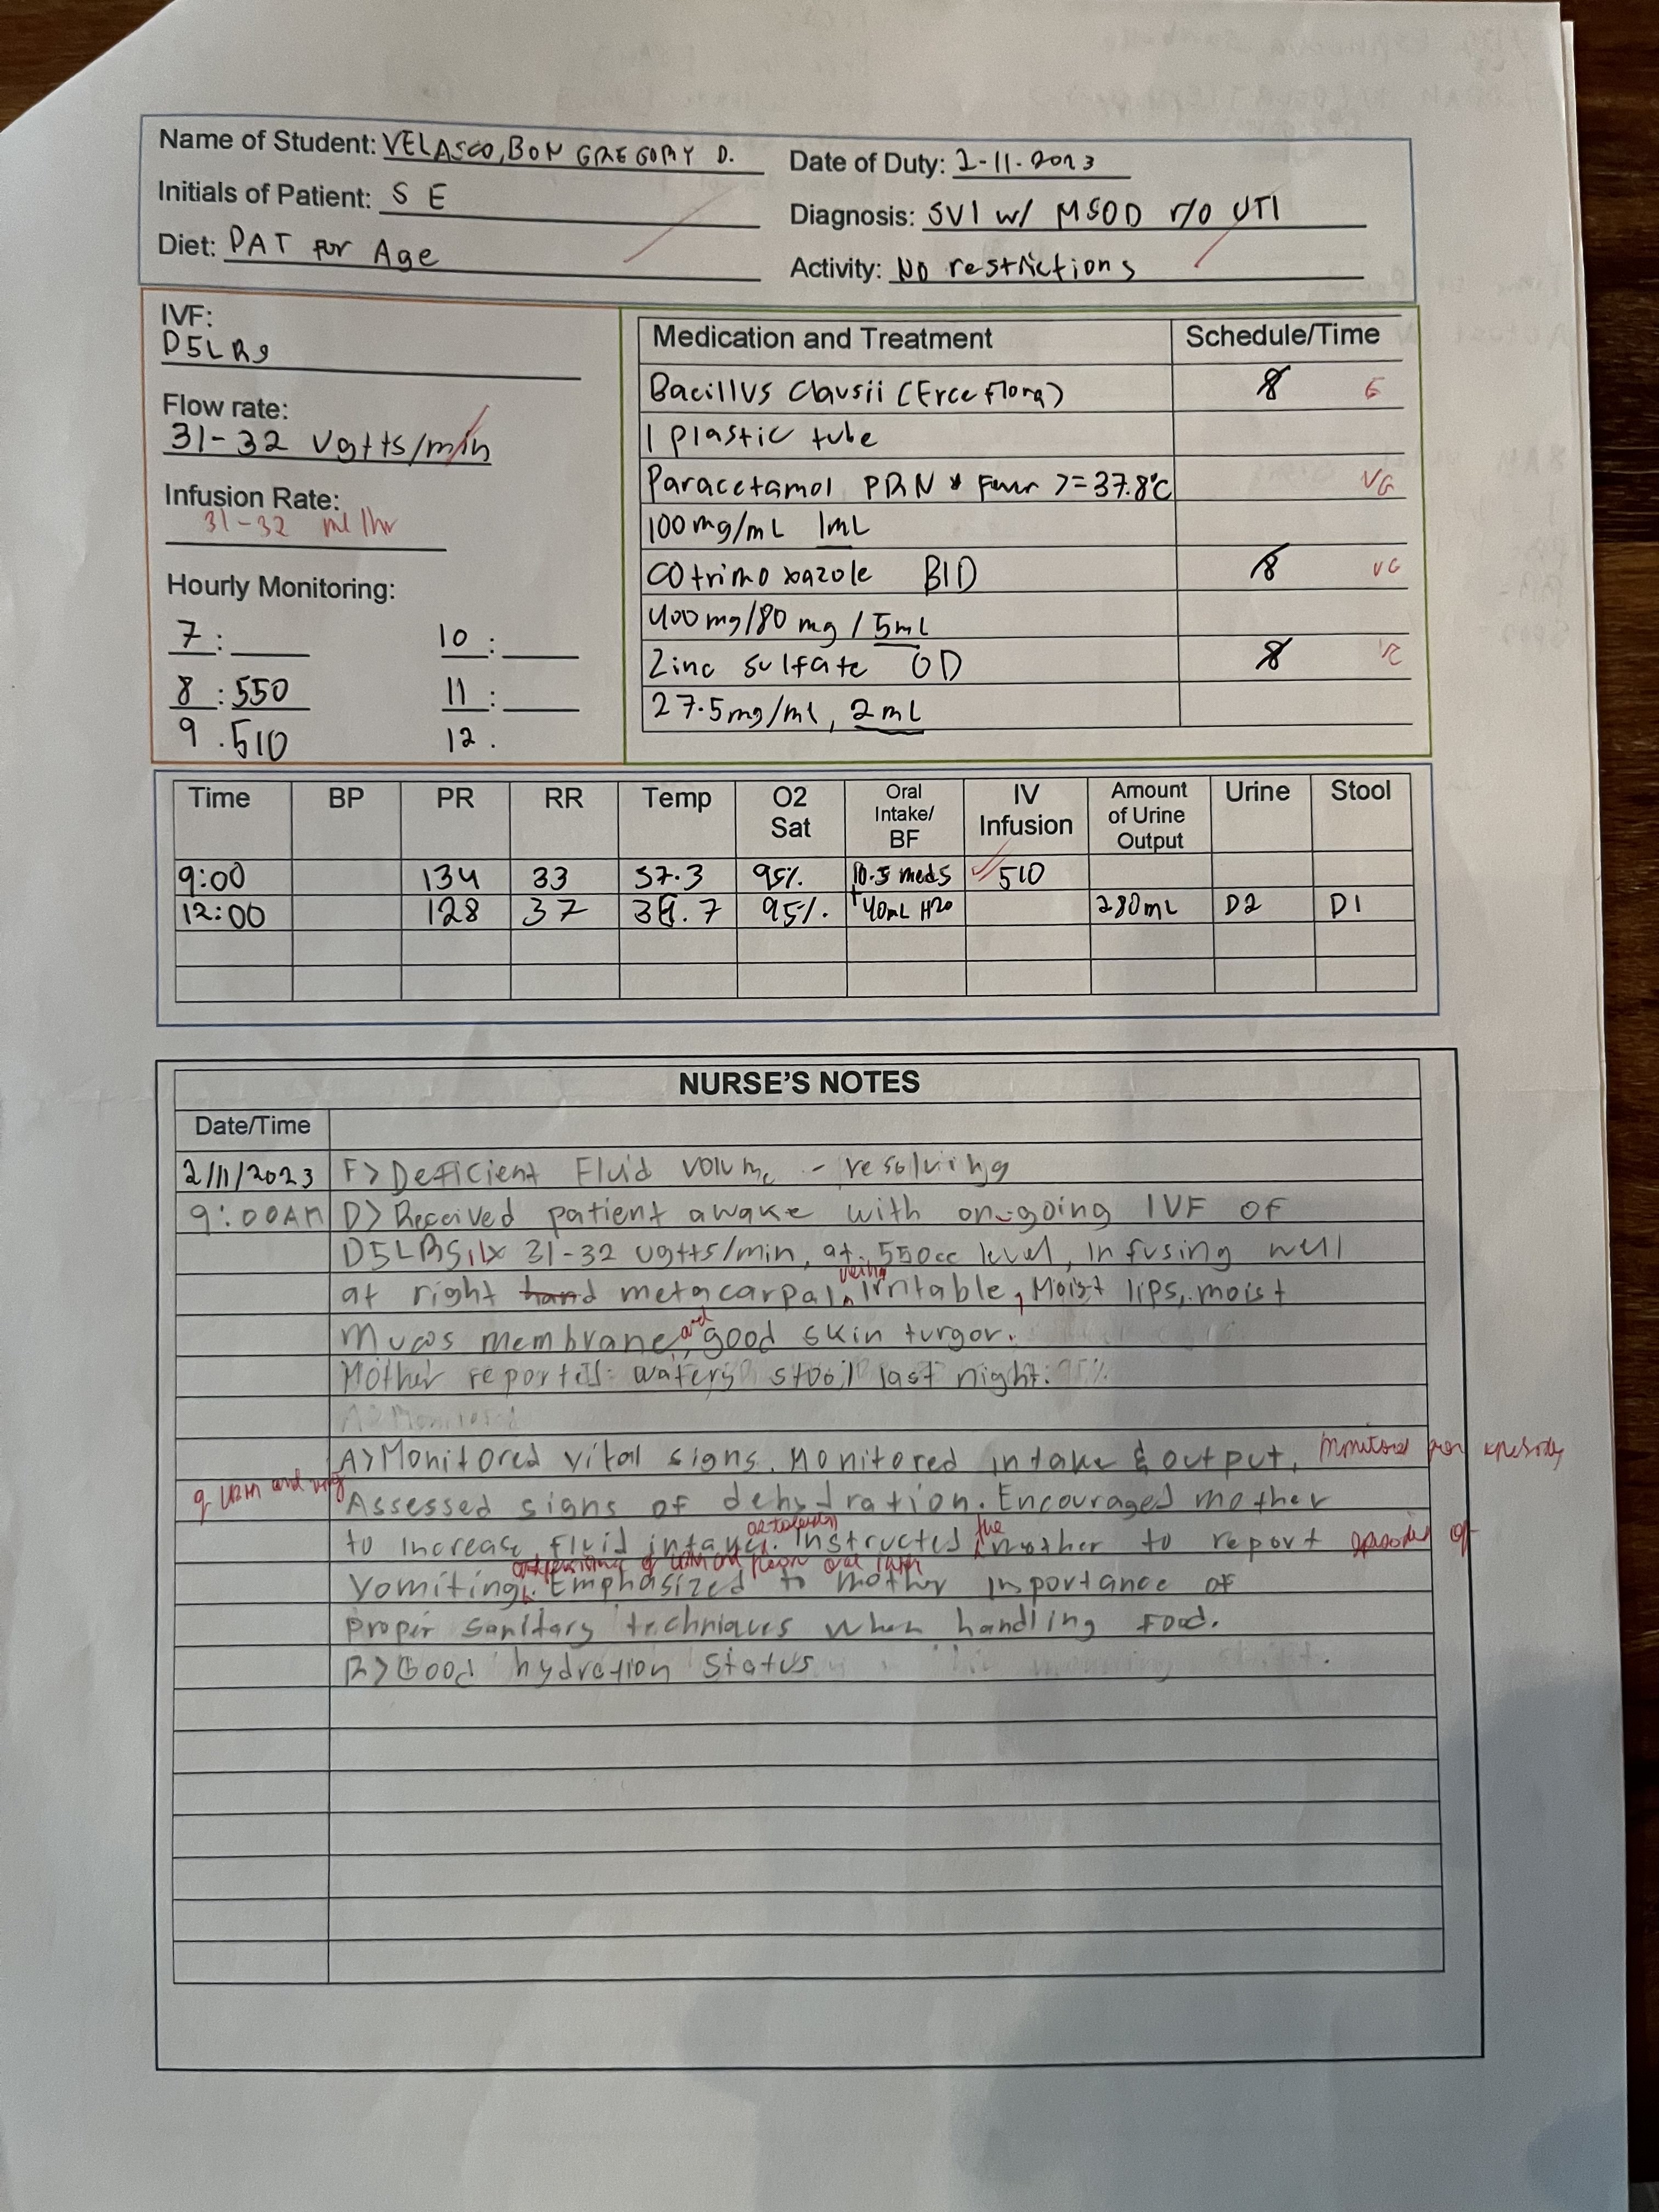 Name of Student: VELASCO, BON GREGORY D.
Date of Duty: 2-11-2023
Initials of Patient: S E
Diagnosis: SVI w/ MSOD r/o UTI
Diet: DAT for Age
Activity: No restrictions
IVF:
D5LRs
Flow rate:
31-32 Ugtts/min
Infusion Rate:
31-32 ml/hr
Hourly Monitoring:
7: 10:
8:550 11:
9.510 12.
Medication and Treatment Schedule/Time
Bacillus Clausii (Erceflora) 8
1 plastic tube
Paracetamol PRN Fever >= 37.8°C VG
100mg/mL 1mL
Cotrimoxazole BID 8 VG
400mg/80 mg / 5mL
Zinc sulfate OD 8
27.5mg/ml, 2mL
Time BP PR RR Temp O2 Sat Oral Intake/ BF IV Infusion Amount of Urine Output Urine Stool
9:00 134 33 37.3 95% 10.5 meds 510
12:00 128 37 36.7 95% + 40mL H2O 280mL D2 D1
NURSE'S NOTES
Date/Time
2/11/2023 F> Deficient Fluid volume - resolving
9:00AM D> Received patient awake with on-going IVF of
D5LRS, 1L x 31-32 ugtts/min, at 550cc level, infusing well
at right hand metacarpal vein, irritable, Moist lips, moist
Mucos membrane, and good skin turgor.
Mother reported: watery stool last night.
A>Monitored
A>Monitored vital signs. Monitored intake & output, monitored for
Assessed signs of dehydration. Encouraged mother
to increase fluid intake as tolerated. Instructed the mother to report episodes of
vomiting. Emphasized to mother importance of
proper sanitary techniques when handling food.
R> Good hydration status